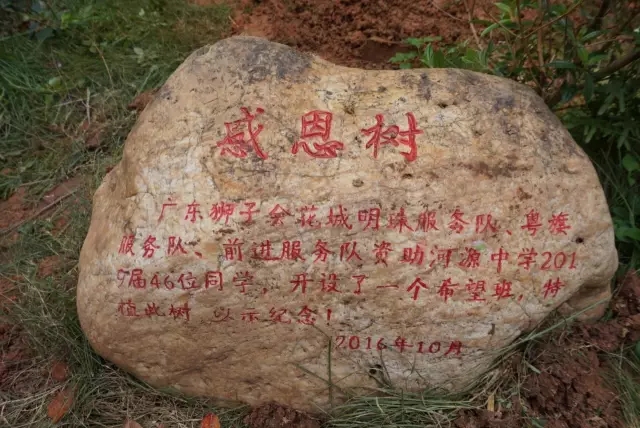 感恩树
广东狮子会花城明珠服务队、粤旗
服务队、前进服务队资助河源中学201
9届46位同学，开设了一个希望班，特
植此树 以示纪念！
2016年10月